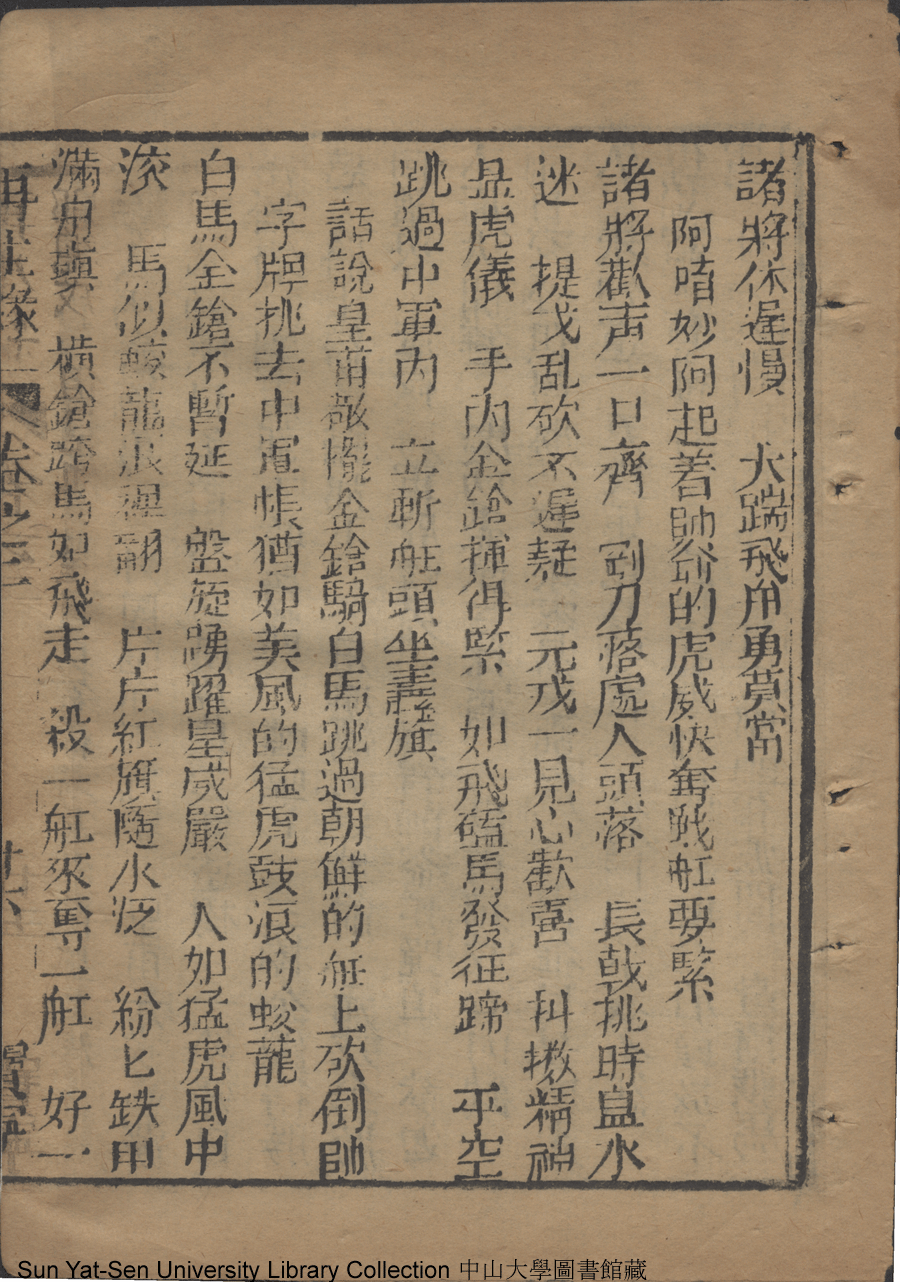 諸將休遲慢　大踹飛舟勇莫當
阿唷妙阿起着帥爺的虎威快奪战舡要緊
諸將歡声一口齊　剛刀落處人頭落　長戟挑時皿水
迷　提戈乱砍不遲疑　元戎一見心歡喜　抖擻精神
显虎儀　手內金鎗揮得緊　如飛磕馬發征蹄　平空
跳過中軍內　立斬舡頭坐纛旗
話說皇甫敬攏金鎗騎白馬跳過朝鮮的舡上砍倒帥
字牌挑去中軍帳猶如美風的猛虎鼓浪的蛟龍
白馬金鎗不暫延　盤旋踴躍星威嚴　人如猛虎風中
滾　馬似蛟龍浪裡翻　片片紅旗隨水泛　紛匕鉄甲
滿舟　橫鎗跨馬如飛走　殺一舡來奪一舡　好一
再生緣　卷之三　十六　寶寧
Sun Yat-Sen University Library Collection 中山大學圖書館藏